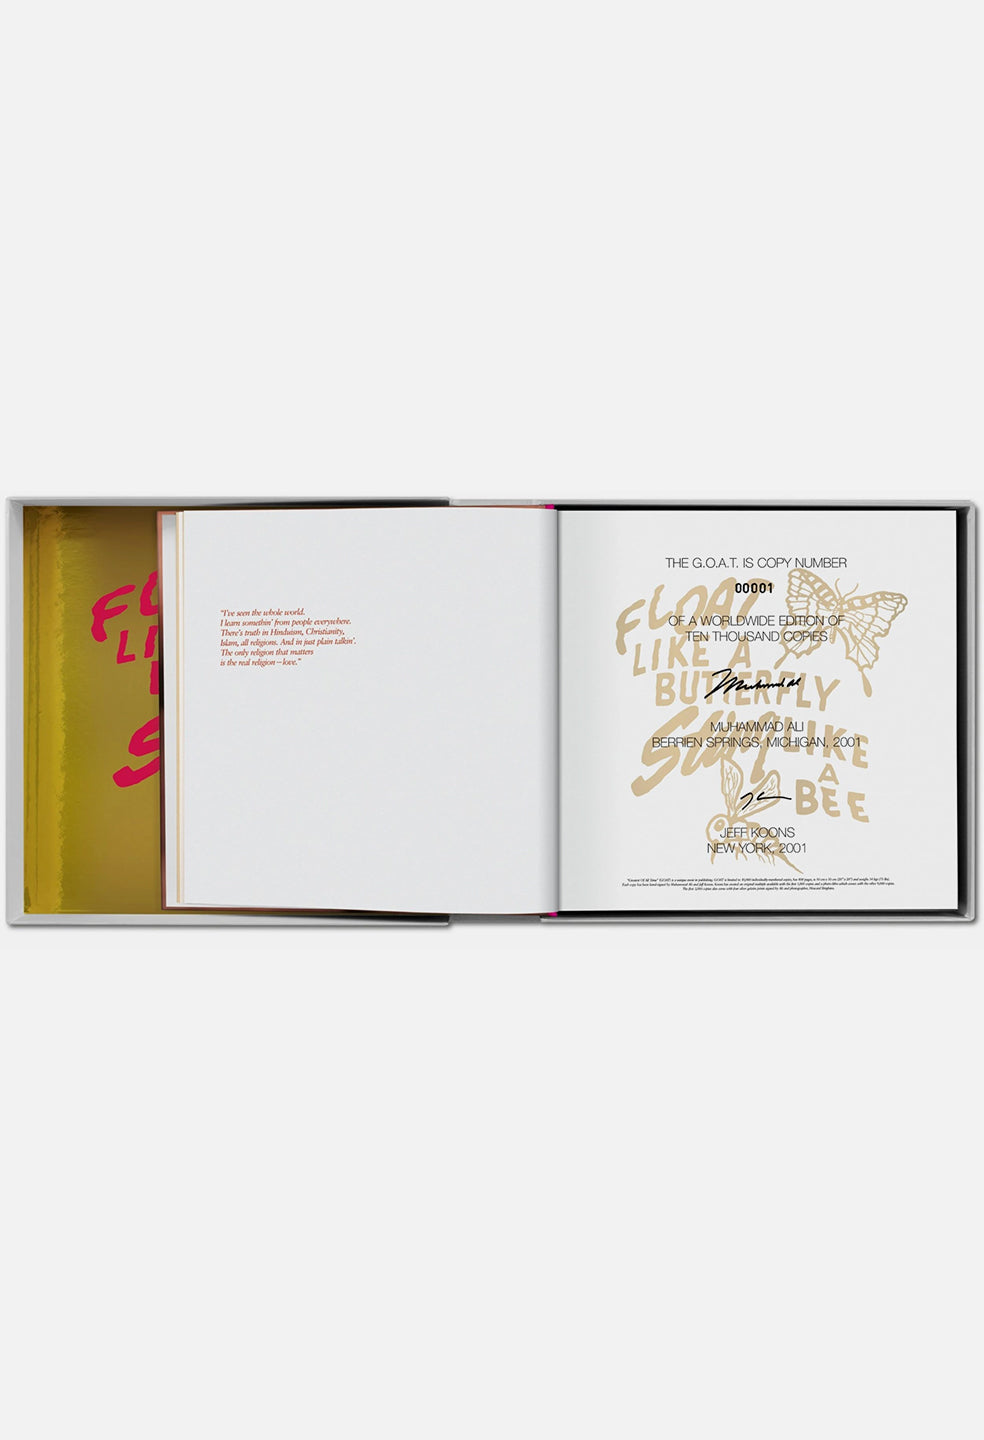 FLO
LI
B
S
“I’ve seen the whole world.
I learn somethin’ from people everywhere.
There’s truth in Hinduism, Christianity,
Islam, all religions. And in just plain talkin’.
The only religion that matters
is the real religion – love.”
THE G.O.A.T. IS COPY NUMBER
00001
OF A WORLDWIDE EDITION OF
TEN THOUSAND COPIES
FLOAT
LIKE A
BUTTERFLY
STING LIKE
A
BEE
Muhammad Ali
MUHAMMAD ALI
BERRIEN SPRINGS, MICHIGAN, 2001
JEFF KOONS
NEW YORK, 2001